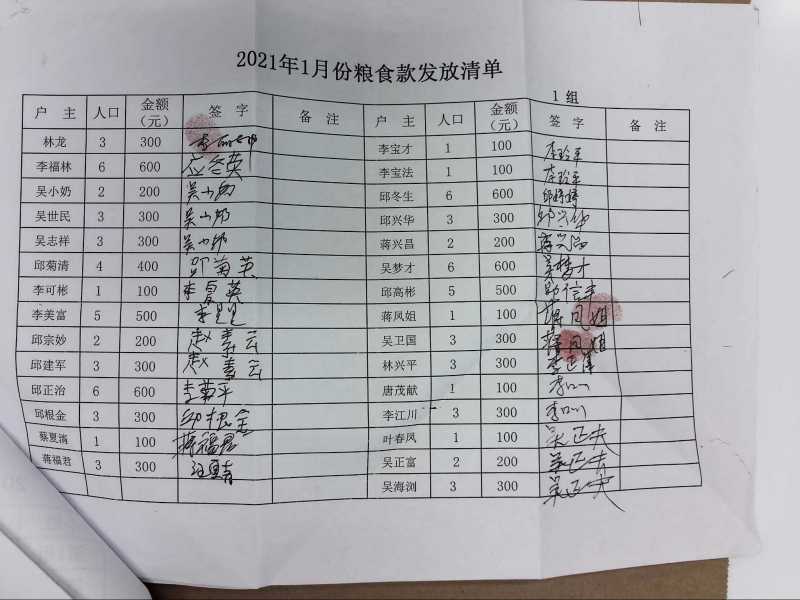 2021年1月份粮食款发放清单
1 组
户 主 人口 金额（元） 签 字 备 注 户 主 人口 金额（元） 签 字 备 注
林龙 3 300 李宝才 1 100
李福林 6 600 应冬英 李宝法 1 100
吴小奶 2 200 吴小奶 邱冬生 6 600 邱婷婷
吴世民 3 300 吴小奶 邱兴华 3 300 邱兴华
吴志祥 3 300 吴小奶 蒋兴昌 2 200 蒋兴昌
邱菊清 4 400 邱菊英 吴梦才 6 600 吴梦才
李可彬 1 100 李夏英 邱高彬 5 500
李美富 5 500 李星星 蒋凤姐 1 100 蒋凤姐
邱宗妙 2 200 赵素云 吴卫国 3 300 蒋凤姐
邱建军 3 300 赵素云 林兴平 3 300
邱正治 6 600 李菊平 唐茂献 1 100
邱根金 3 300 邱根金 李江川 3 300
蔡夏滴 1 100 蒋福君 叶春凤 1 100 吴正夫
蒋福君 3 300 吴正富 2 200 吴正夫
吴海浏 3 300 吴正夫